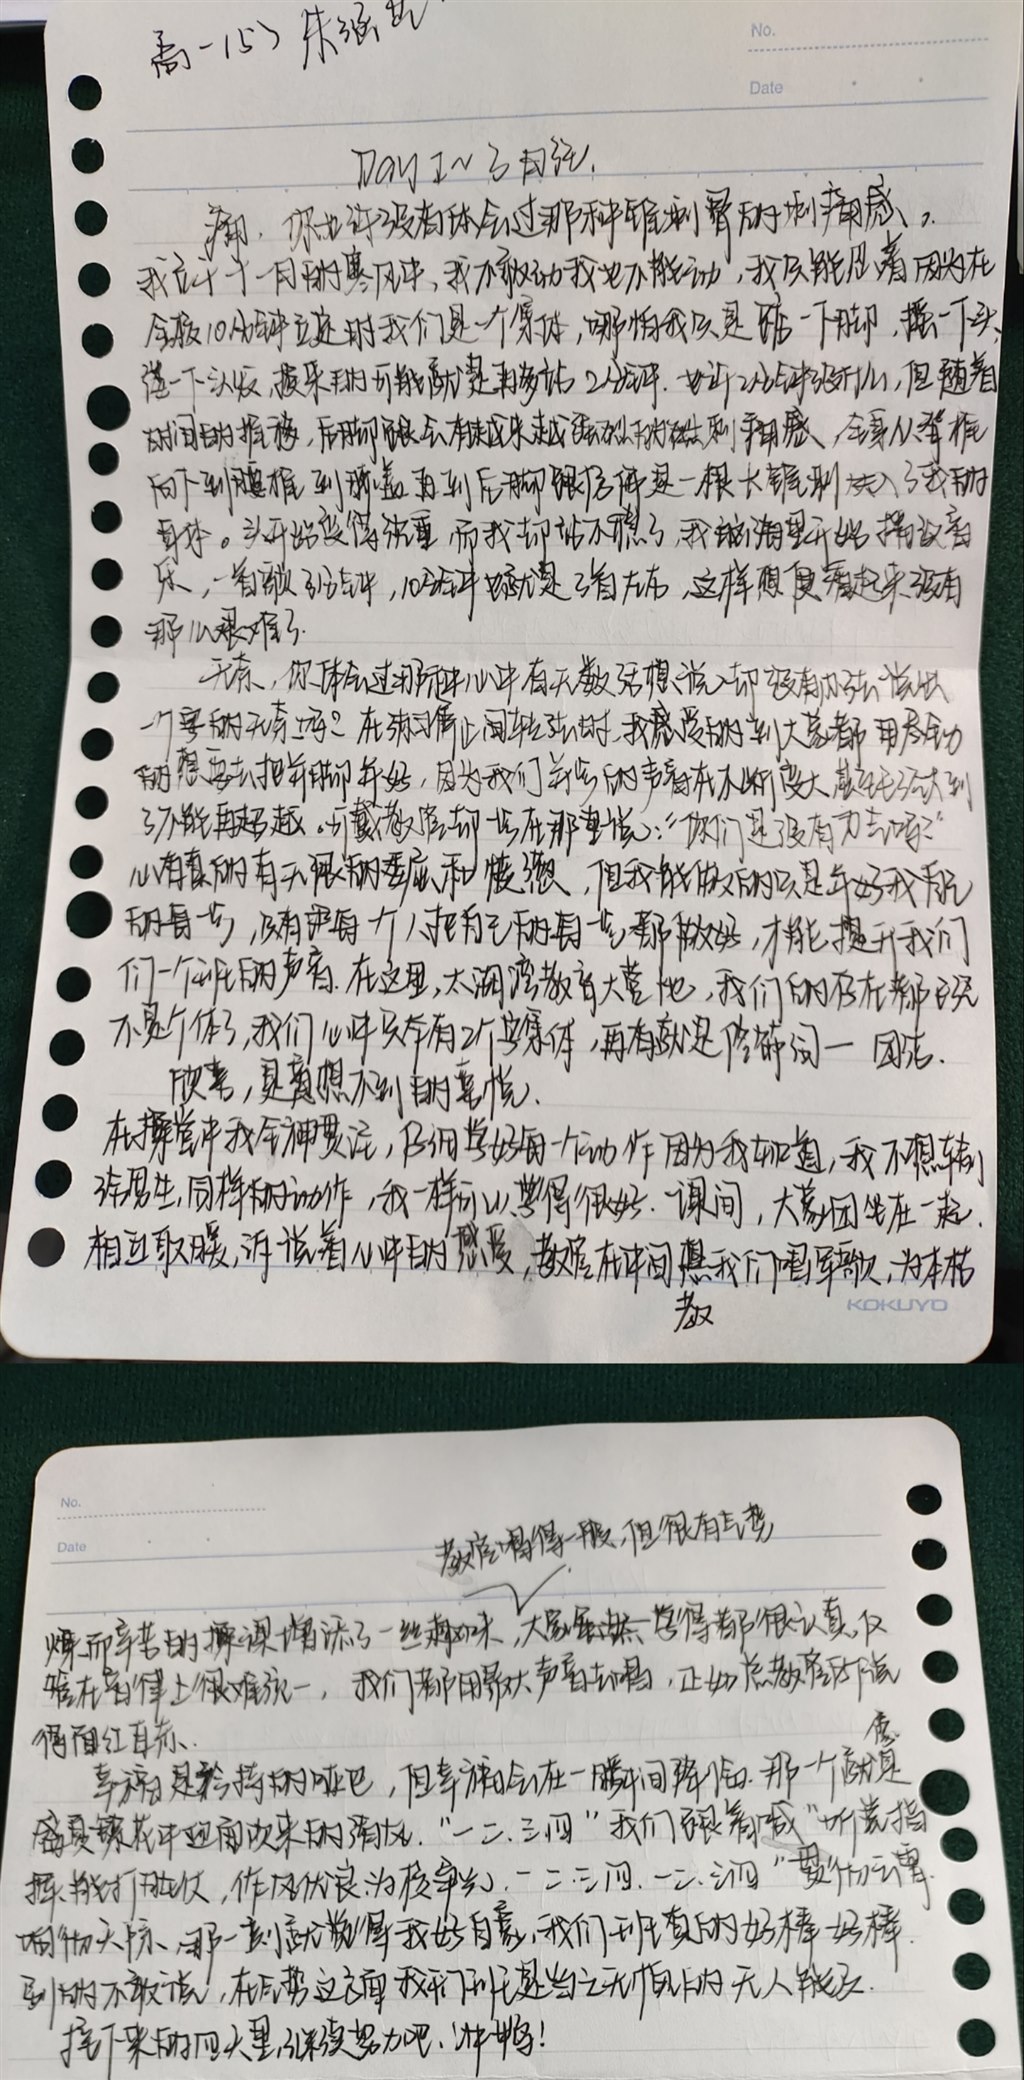 高一(5) 朱
No.
Date
Day 1~3 日记.
痛，你也许没有体会过那种锥刺骨的刺痛感。
我立于十一月的寒风中，我不敢动我也不能动，我只能忍着因为在
全极10分钟立定时我们是一个集体，哪怕我只是踮一下脚，摇一下头，
撩一下头发，换来的可能就是再多站2分钟.也许2分钟没什么，但随着
时间的推移，后脚跟会有越来越强烈的刺痛感，全身从脊椎
向下到腰椎到膝盖再到后脚跟仿佛是一根长锥刺插入了我的
身体。头开始变得沉重，而我却站不稳了，我脑海里开始播放音
乐，一首歌3分钟，10分钟也就是3首左右，这样想便看起来没有
那么艰难了.
无奈，你体会过那种心中有无数话想说却没有办法说出
一个字的无奈吗？在练习停止间转法时，我感受的到大家都用尽全力
的想要去把并脚并好，因为我们并步的声音在不断变大甚至已经大到
了不能再超越。可戴教官却一步在那里说：“你们是没有力气吗？”
心有真的有无限的委屈和愤懑，但我能做的只是并好我自己
的每一步，只有当每一个人把自己的每一步都做好，才能提升我们
们一个班的声音.在这里，太湖湾教育大营地，我们的存在都已经
不是个体了，我们心中只存有2个字集体，再有就是作诗词一团结.
欣喜，是意想不到的喜悦.
在操堂中我全神贯注，仔细学好每一个动作因为我知道，我不想输
给男生，同样的动作，我一样可以学得很好.课间，大家团坐在一起.
相互取暖，诉说着心中的感受，教官在中间想我们唱军歌，为本枯
教
KOKUYO
No.
Date
教官唱得一般，但很有气势
燥而辛苦的操课增添了一丝趣味，大家虽然学得都很认真,仅
管在音律上很难统一，我们都用最大声音去唱，正如总教官所说
得面红耳赤.
像
幸福是矜持的哑巴，但幸福会在一瞬间降临.那一个就是
盛夏繁花中迎面吹来的清风.“一二.三四”我们跟着喊“听党指
挥.能打胜仗，作风优良为核心.一二.三四.一二.三四”贯彻云霄.
响彻天际.那一刻就觉得我好自豪，我们班真的好棒好棒.
别的不敢说，在气势这方面我们班是当之无愧的无人能及.
接下来的四天里,继续努力吧.冲鸭！